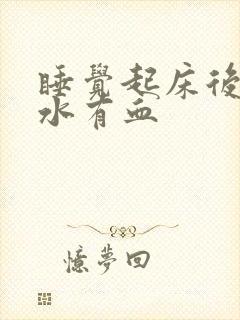 睡覺起床後
水有血
憶夢回